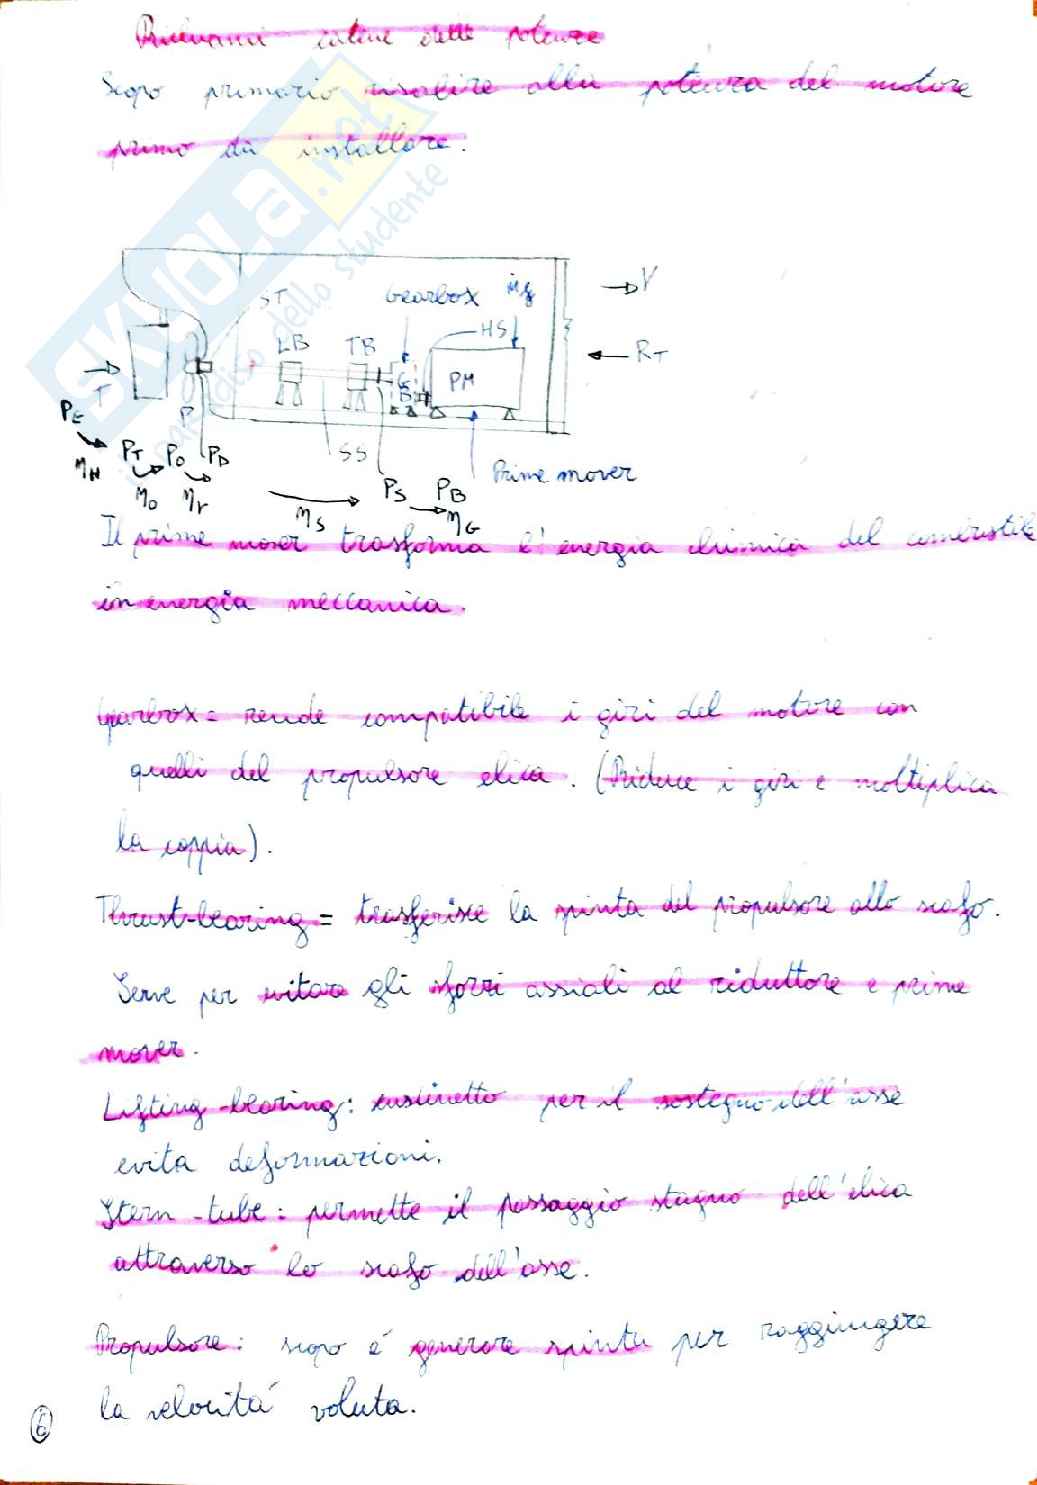 Richiami catene delle potenze
Scopo primario risalire alla potenza del motore
primo da installare.
SKUOLA.net
paradiso dello studente
V
ST
gearbox
LB
TB
HS
RT
T
G
B
PM
P
PE
PT
PO
PD
SS
ηH
ηO
ηr
ηS
PS
PB
ηG
Prime mover
Il prime mover trasforma l'energia chimica del combustibile
in energia meccanica.
Gearbox = rende compatibile i giri del motore con
quelli del propulsore elica. (Riduce i giri e moltiplica
la coppia).
Thrust-bearing = trasferisce la spinta del propulsore allo scafo.
Serve per evitare gli sforzi assiali al riduttore e prime
mover.
Lifting-bearing: cuscinetto per il sostegno dell'asse
evita deformazioni.
Stern-tube: permette il passaggio stagno dell'elica
attraverso lo scafo dell'asse.
Propulsore: scopo é generare spinta per raggiungere
la velocitá voluta.
6